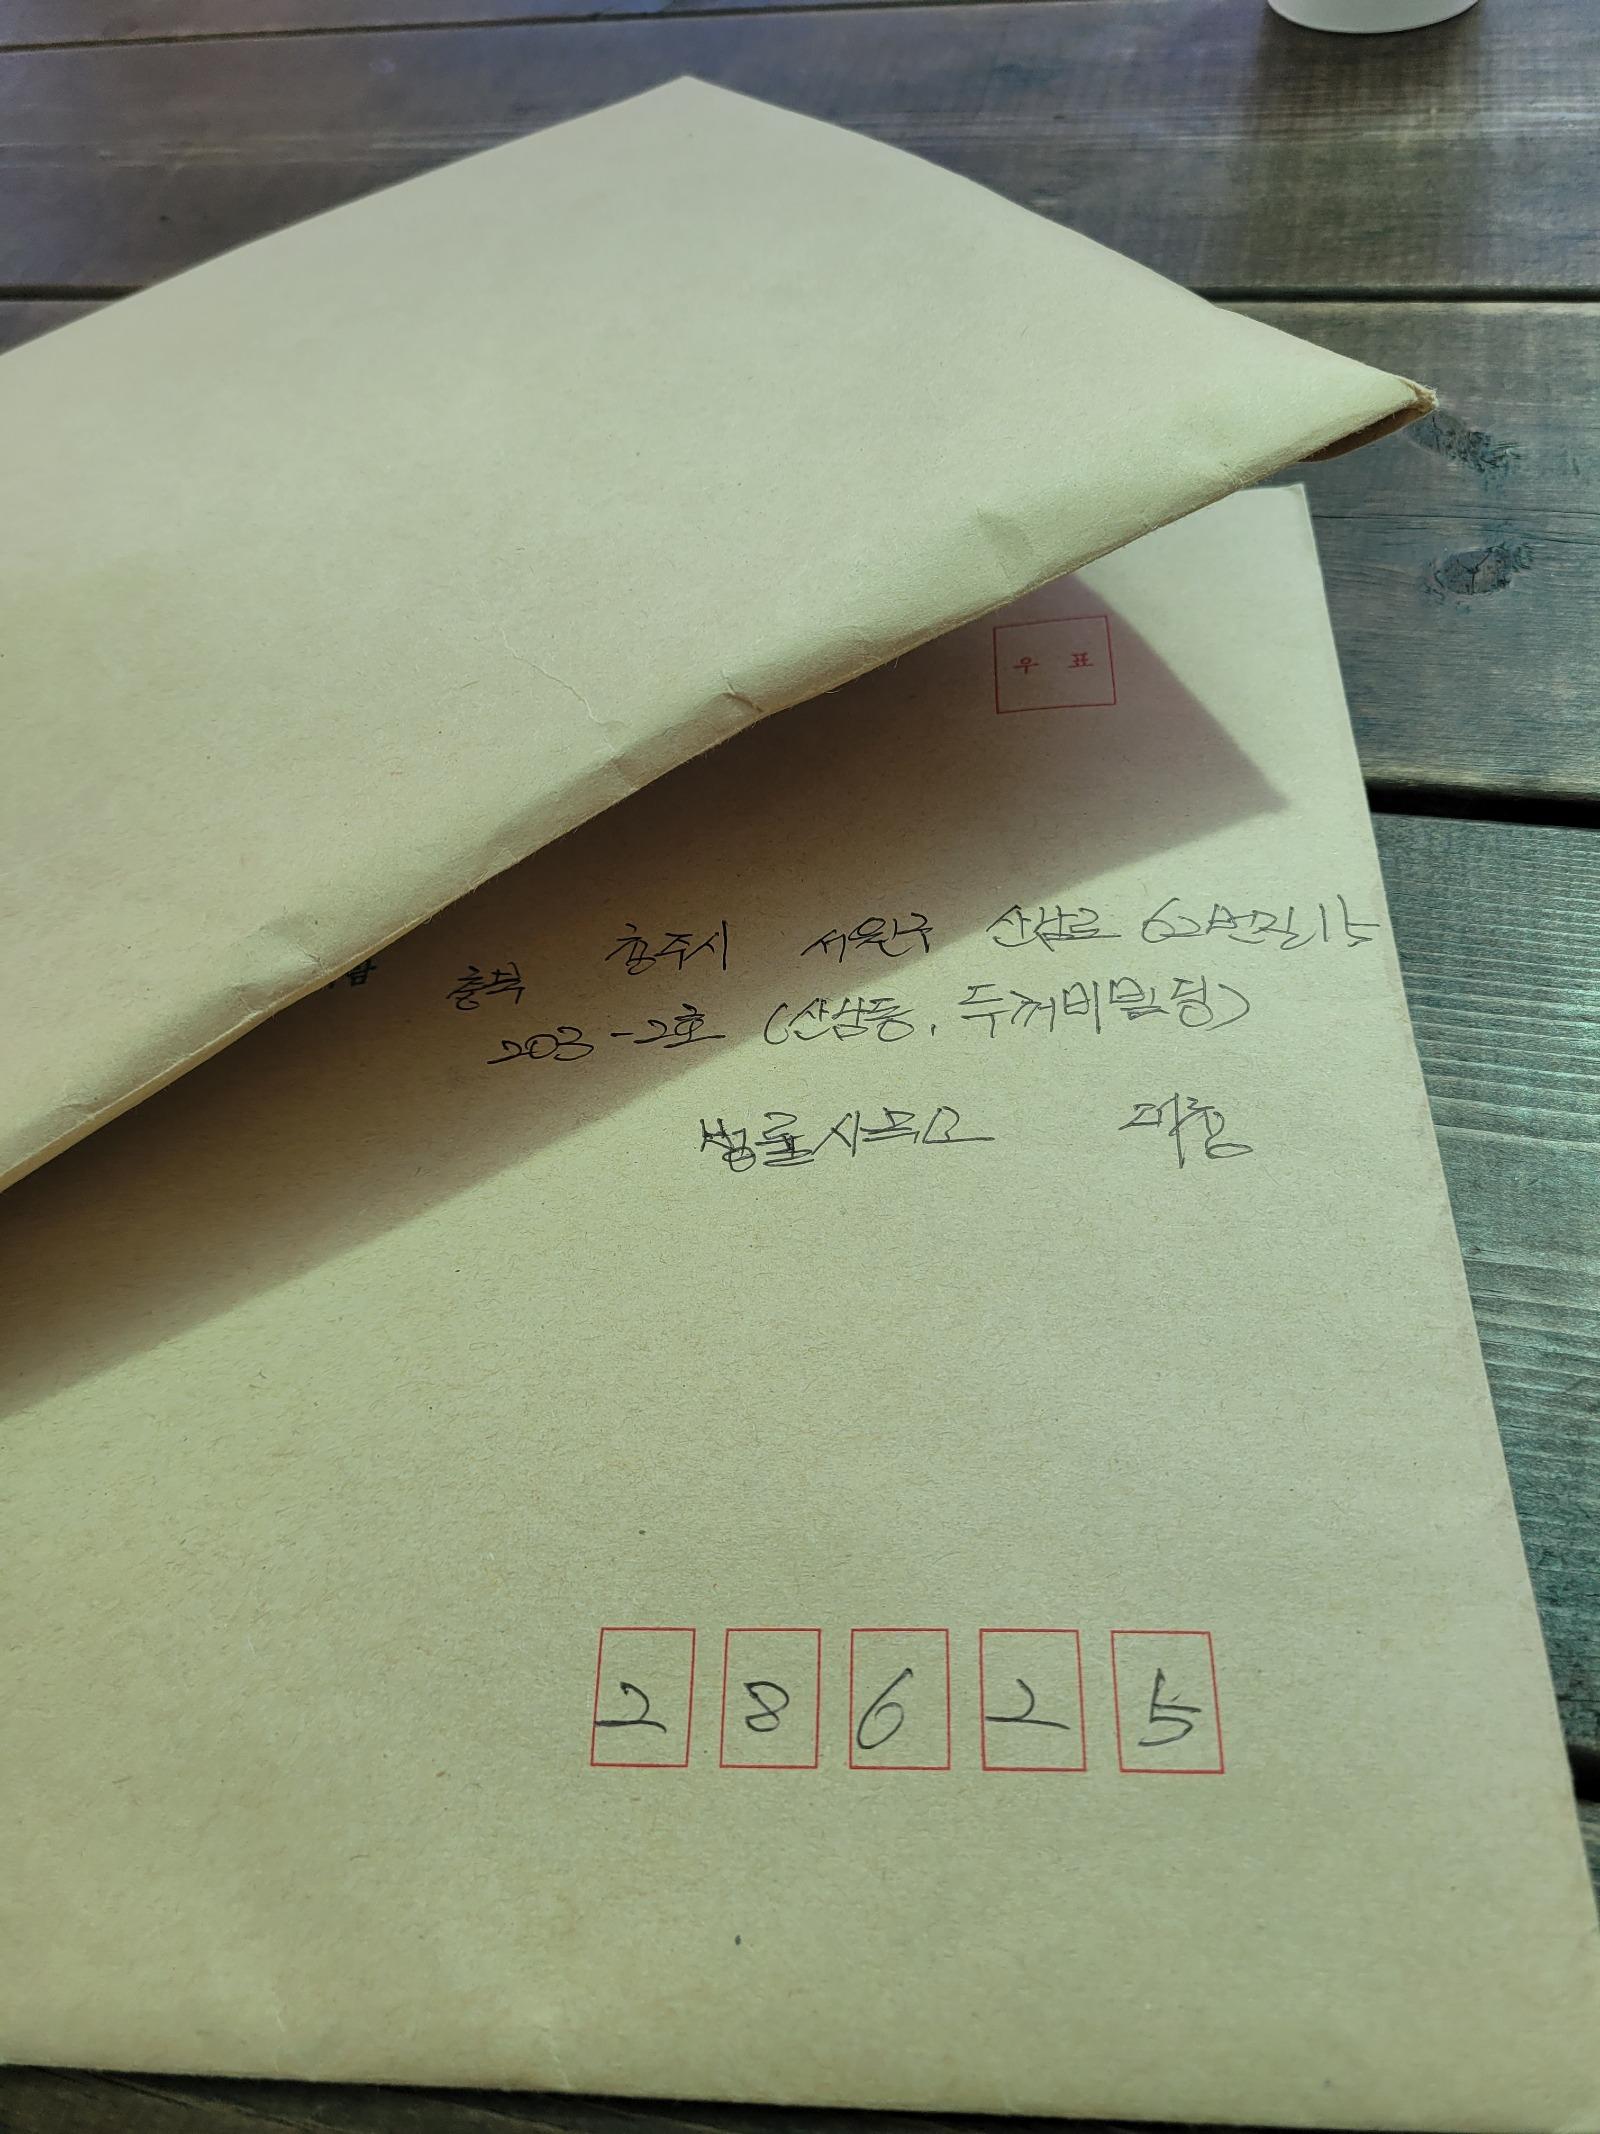 우 표
충북 청주시 서원구 산남로 62번길 15
203-2호 (산남동, 두꺼비빌딩)
법률사무소
28625